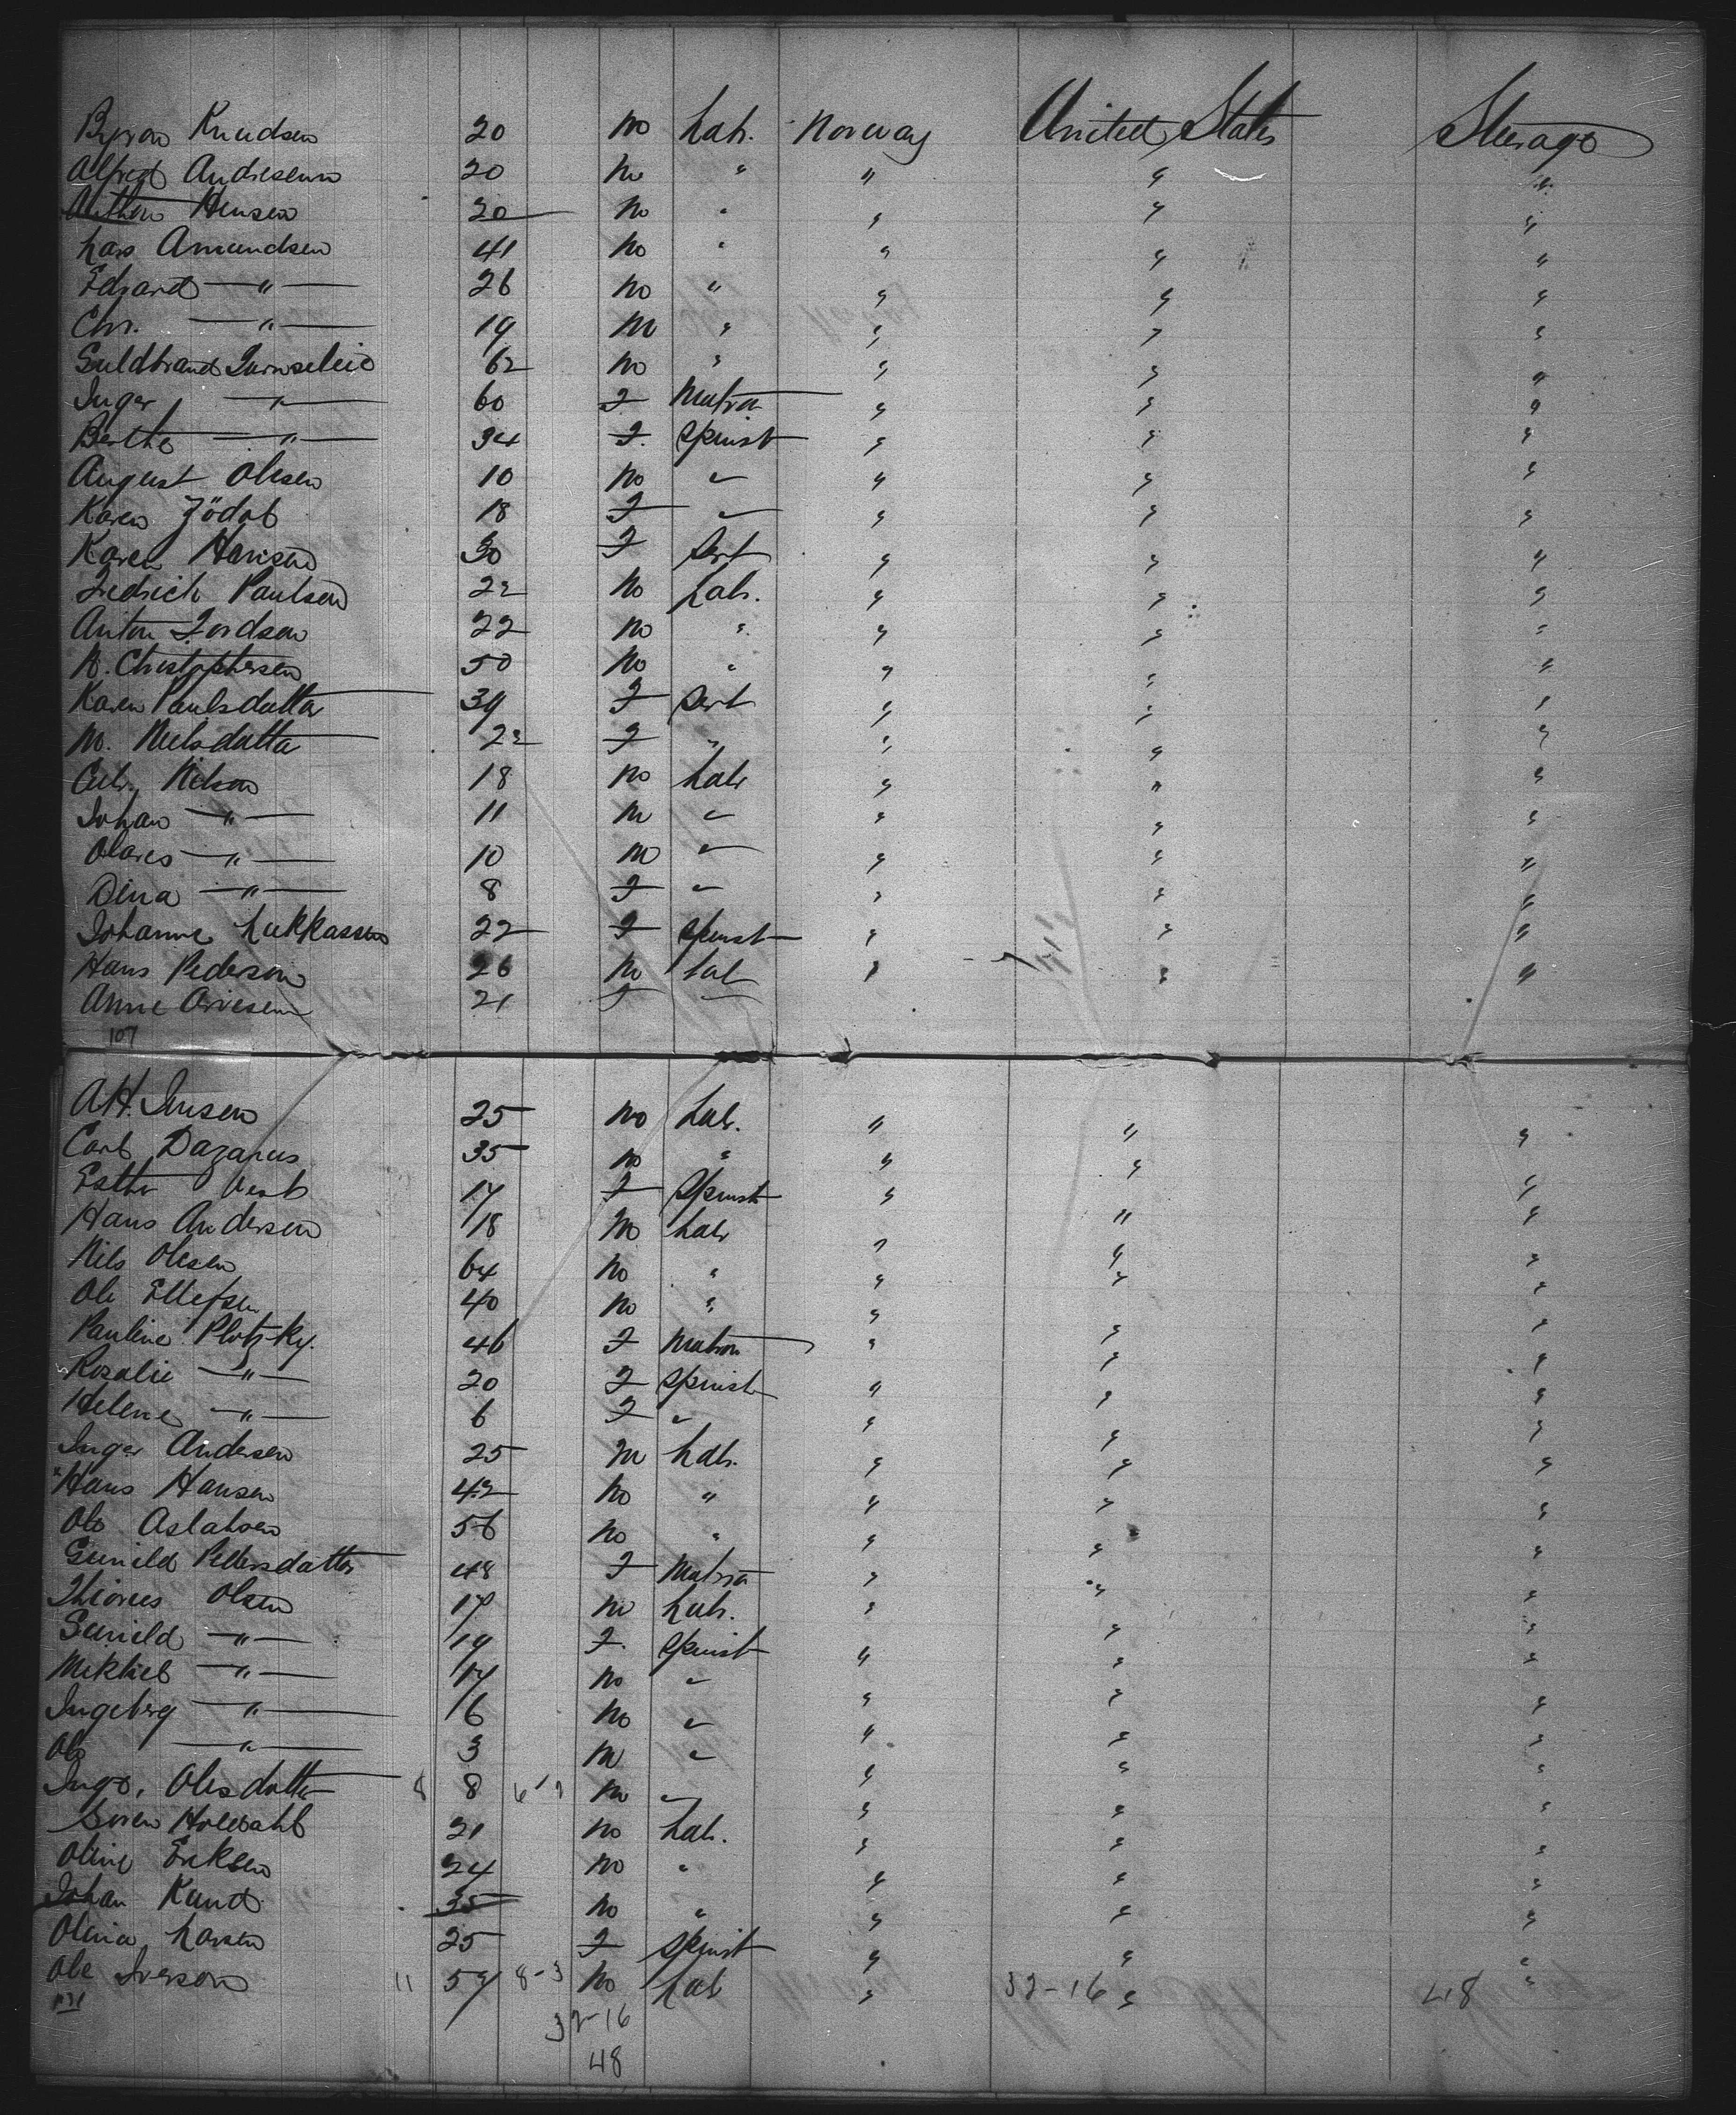 Byron Knudsen 20 m Lab. Norway United States Steerage
Alfred Andresenn 20 m " " " "
Anthon Hensen 20 m " " " "
Lars Amundsen 41 m " " " "
Edvard —"— 26 m " " " "
Chr. —"— 19 m " " " "
Guldbrand 62 m " " " "
Inger —"— 60 F Matron " " "
Berthe —"— 34 F. Spinst " " "
August Olesen 10 m " " " "
Karen 18 F " " " "
Karen Hansen 30 F Sert " " "
Fredrich Paulsen 22 m Lab. " " "
Anton Fordsen 22 m " " " "
N. Christophersen 50 m " " " "
Karen Paulsdatta 39 F Sert " " "
M. Neelsdatta 22 F " " " "
Nilsen 18 m Labr " " "
Johan —"— 11 m " " " "
Olares —"— 10 m " " " "
Dina —"— 8 F " " " "
Johanne Lukkassen 22 F Spinst " " "
Hans Pedersen 26 m Lab " " "
Anne Arvesen 21 F "
107
A.H. Jensen 25 m Lab. " " "
Carl Dazarus 35 m " " " "
Esther 17 F Spinst " " "
Hans Andersen 18 m Labr " " "
Nils Olesen 64 m " " " "
Ole Ellefsen 40 m " " " "
Pauline Plotzky. 46 F Matron " " "
Rosalie —"— 20 F Spinst " " "
Helene —"— 6 F " " " "
Inger Andersen 25 m Lab. " " "
Hans Hansen 42 m " " " "
Ole Aslaksen 56 m " " " "
Gunild Pedersdatter 48 F Matron " " "
Olsen 17 m Lab. " " "
Gunild —"— 19 F. Spinst " " "
Mikkel —"— 14 m " " " "
Ingeberg —"— 6 m " " " "
Ole —"— 3 m " " " "
Inge. Olesdatter 8 8 6-2 m " " " "
Soren 21 m Lab. " " "
Oline Eriksen 24 m " " " "
Johan Kand 35 m " " " "
Olena Larsen 25 F Spinst " " "
Ole Iverson 11 57 8-3 m Lab " 32-16 " 48 "
131
32-16
48